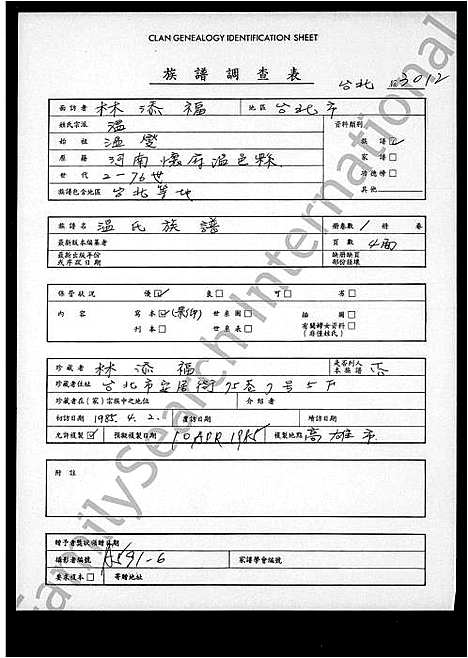 CLAN GENEALOGY IDENTIFICATION SHEET
族譜調查表
台北 3012
面訪者 林添福 地區 台北市
姓氏宗派 溫 資料類別
始祖 溫 族譜 ☑
原籍 河南懷府溫邑縣 家譜 □
世代 2-76世 功德榜 □
族譜包含地區 台北等地 其他
族譜名 溫氏族譜 冊卷數 1 冊 卷
最新版本編纂者 頁數 4面
最新出版年份 缺冊缺頁
或序跋日期 部份註環
保管狀況 優 ☑ 良 □ 可 □ 劣 □
內容 寫本 ☑ (影印) 世系圖 □ 插圖 □
刊本 □ 世系表 □ 有關婦女資料 □
(並僅姓氏)
珍藏者 林添福 是否列入本族譜 否
珍藏者住址 台北市安居街75巷7号5F
珍藏者在(家)宗族中之地位 介紹者
初訪日期 1985.4.2. 重訪日期 續訪日期
允許複製 ☑ 預擬複製日期 10 APR 1985 複製地點 高雄市
附註
贈予者獎狀頒贈日期
攝影者編號 A591-6 家譜學會編號
要求複本 □ 寄贈地址
FamilySearch International